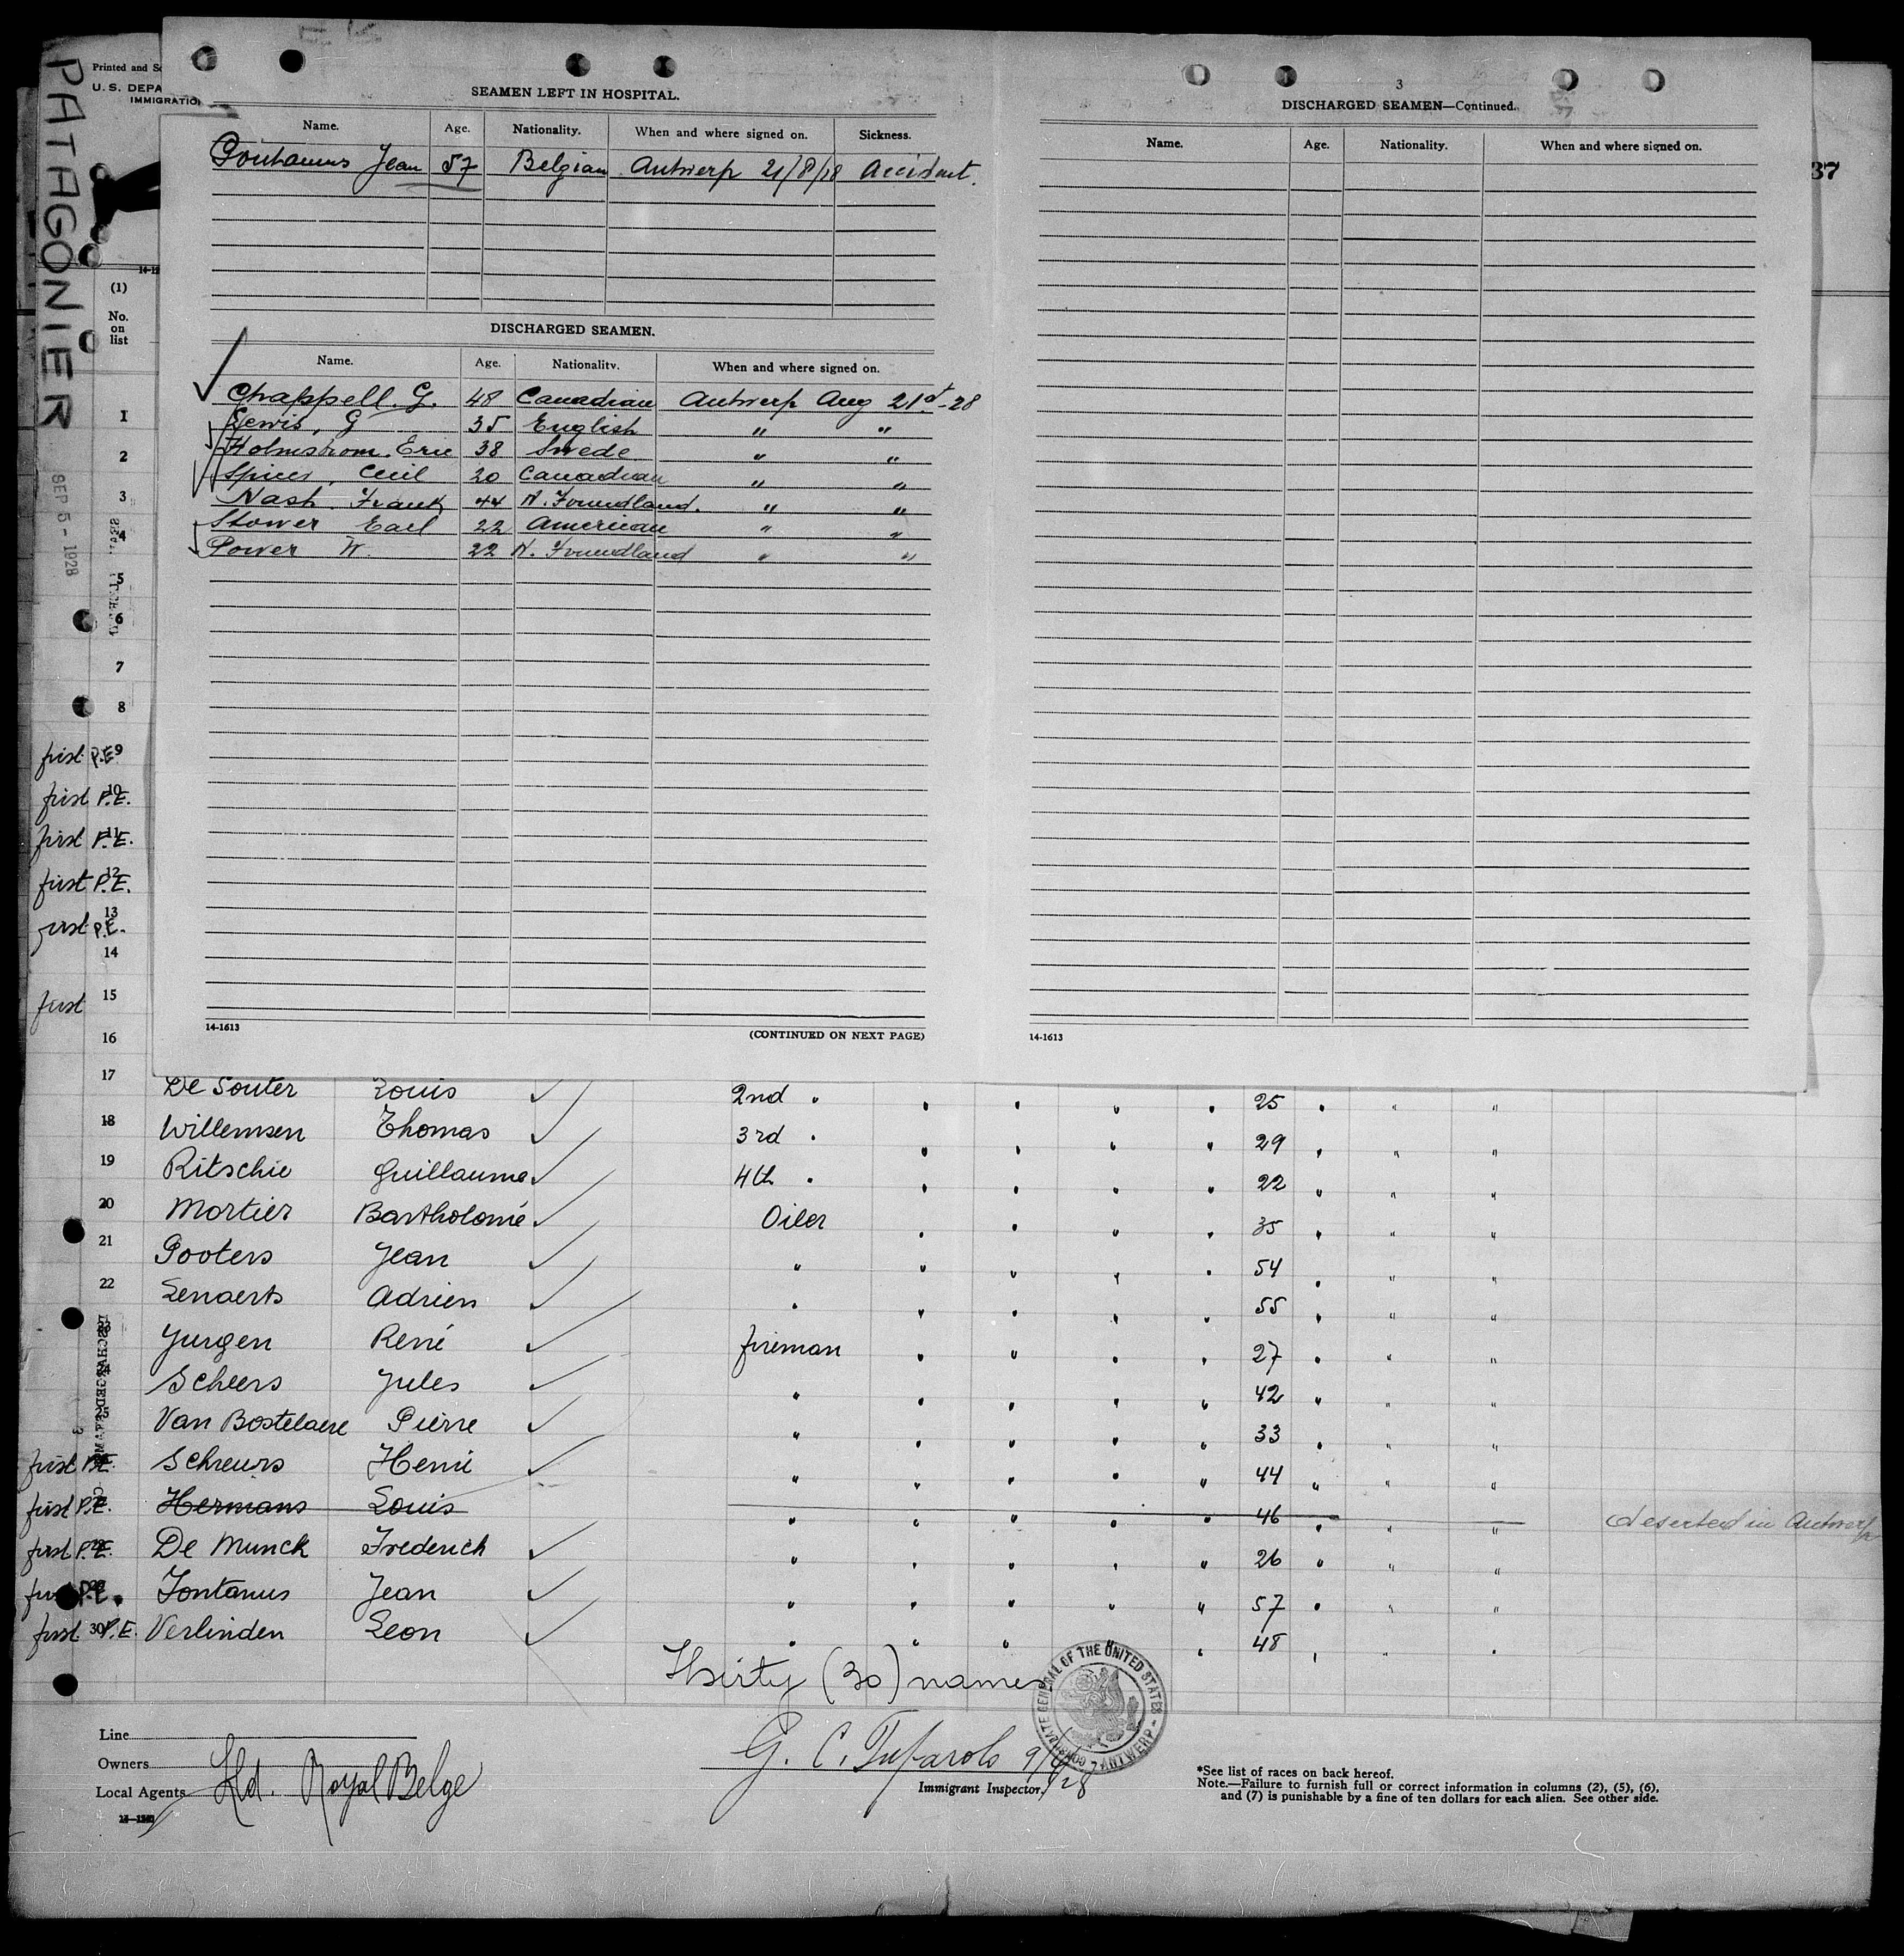 PATAGONIER
SEP 5 - 1928
Printed and
U. S. DEPA
IMMIGRATIO
37
SEAMEN LEFT IN HOSPITAL.
Name. Age. Nationality. When and where signed on. Sickness.
Jean 57 Belgian Antwerp 21/8/28 Accident.
DISCHARGED SEAMEN.
Name. Age. Nationality. When and where signed on.
Chappell. G. 48 Canadian Antwerp Aug 21st-28
Lewis, G 35 English " "
Holmstrom. Eric 38 Swede " "
Spicer, Cecil 20 Canadian " "
Nash. Frank 44 N. Foundland. " "
Stower Earl 22 American " "
Power W. 22 N. Foundland " "
14-1613
(CONTINUED ON NEXT PAGE)
3
DISCHARGED SEAMEN—Continued.
Name. Age. Nationality. When and where signed on.
14-1613
(1)
No.
on
list
1
2
3
4
5
6
7
8
first P.E. 9
first P.E. 10
first P.E. 11
first P.E. 12
first P.E. 13
14
first 15
16
17 De Souter Louis 2nd " " " " " 25 " " "
18 Willemsen Thomas 3rd " " " " " 29 " " "
19 Ritschie Guillaume 4th " " " " " 22 " " "
20 Mortier Bartholomé Oiler " " " " 35 " " "
21 Pooters Jean " " " " " 54 " " "
22 Lenaerts Adrien " " " " " 55 " " "
23 Jurgen René fireman " " " " 27 " " "
24 Scheers Jules " " " " " 42 " " "
25 Van Bostelaere Pierre " " " " " 33 " " "
first P.E. Schreurs Henri " " " " " 44 " " "
first P.E. Hermans Louis " " " " " 46 " " " deserted in Antwerp
first P.E. De Munck Frederich " " " " " 26 " " "
first P.E. Fontanus Jean " " " " " 57 " " "
first 30 P.E. Verlinden Leon " " " " 48 " " "
Thirty (30) names
CONSULATE GENERAL OF THE UNITED STATES - ANTWERP -
Line
Owners
Local Agents Lld. Royal Belge
Immigrant Inspector.
*See list of races on back hereof.
Note.—Failure to furnish full or correct information in columns (2), (5), (6),
and (7) is punishable by a fine of ten dollars for each alien. See other side.